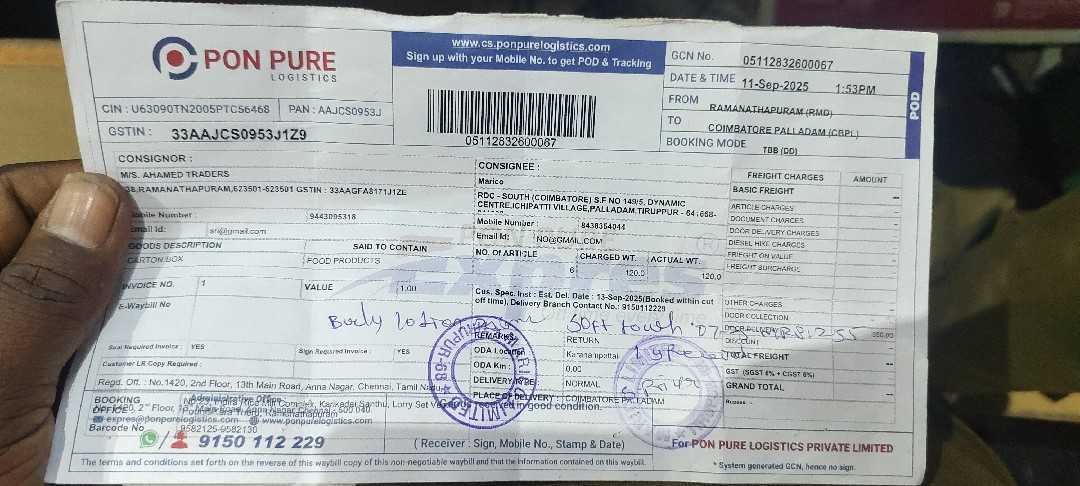 PON PURE
LOGISTICS
www.cs.ponpurelogistics.com
Sign up with your Mobile No. to get POD & Tracking
05112832600067
GCN No. 05112832600067
DATE & TIME 11-Sep-2025 1:53PM
FROM RAMANATHAPURAM (RMD)
TO COIMBATORE PALLADAM (CBPL)
BOOKING MODE TBB (DD)
POD
CIN : U63090TN2005PTC56468 PAN : AAJCS0953J
GSTIN : 33AAJCS0953J1Z9
CONSIGNOR :
M/S. AHAMED TRADERS
38,RAMANATHAPURAM,623501-623501 GSTIN : 33AAGFA8171J1ZE
Mobile Number : 9443095318
Email Id: sri@gmail.com
GOODS DESCRIPTION SAID TO CONTAIN
CARTON BOX FOOD PRODUCTS
INVOICE NO. 1 VALUE 1.00
E-Waybill No
Seal Required Invoice : YES Sign Required Invoice : YES
Customer LR Copy Required :
CONSIGNEE :
Marico
RDC - SOUTH (COIMBATORE) S.F NO 149/5, DYNAMIC
CENTRE,ICHIPATTI VILLAGE,PALLADAM,TIRUPPUR -
Mobile Number : 8438354044
Email Id: NO@GMAIL.COM
NO. Of ARTICLE CHARGED WT. ACTUAL WT.
6 120.0 120.0
Cus. Spec. Inst : Est. Del. Date : 13-Sep-2025(Booked within cut
off time), Delivery Branch Contact No.: 9150112229
Body lotion Soft touch
REMARKS RETURN
ODA Location
ODA Km : 0.00
DELIVERY TYPE: NORMAL
PLACE OF DELIVERY : COIMBATORE PALLADAM
FREIGHT CHARGES AMOUNT
BASIC FREIGHT
ARTICLE CHARGES
DOCUMENT CHARGES
DOOR DELIVERY CHARGES
DIESEL HIKE CHARGES
FREIGHT ON VALUE
FREIGHT SURCHARGE
OTHER CHARGES
DOOR COLLECTION
DISCOUNT
TOTAL FREIGHT
GST (SGST 6% + CGST 6%)
GRAND TOTAL
Rupees :
Regd. Off. : No.1420, 2nd Floor, 13th Main Road, Anna Nagar, Chennai, Tamil Nadu
BOOKING
OFFICE
Administrative Office :
expres@ponpurelogistics.com www.ponpurelogistics.com
Barcode No 9582125-9582130
9150 112 229
received in good condition.
( Receiver : Sign, Mobile No., Stamp & Date)
For PON PURE LOGISTICS PRIVATE LIMITED
The terms and conditions set forth on the reverse of this waybill copy of this non-negotiable waybill and that the information contained on this waybill.
* System generated GCN, hence no sign.